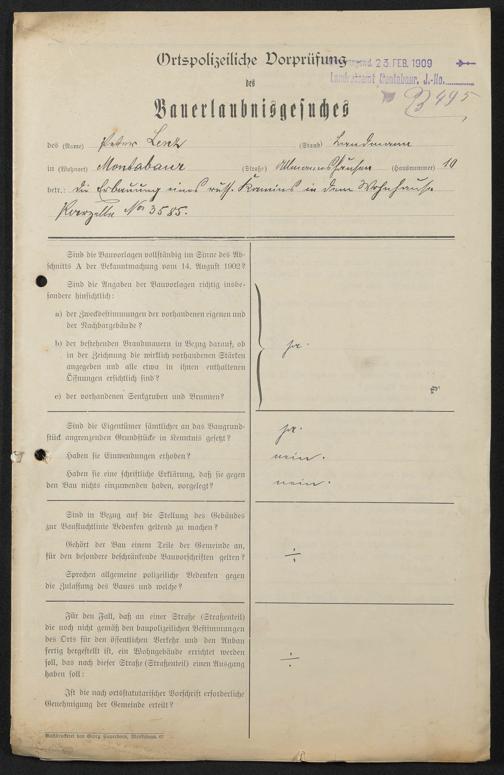 Ortspolizeiliche Vorprüfung
23. FEB. 1909
Landratsamt Montabaur. J.-No.
3495
des
Bauerlaubnisgesuches
des (Name) Peter Lenz (Stand) Landmann
in (Wohnort) Montabaur (Straße) Allmannshausen (Hausnummer) 10
betr.: die Erbauung eines russ. Kamins in dem Wohnhause
Parzelle No 3585.
Sind die Bauvorlagen vollständig im Sinne des Ab-
schnitts A der Bekanntmachung vom 14. August 1902?
Sind die Angaben der Bauvorlagen richtig insbe-
sondere hinsichtlich:
a) der Zweckbestimmungen der vorhandenen eigenen und
der Nachbargebäude?
b) der bestehenden Brandmauern in Bezug darauf, ob
in der Zeichnung die wirklich vorhandenen Stärken
angegeben und alle etwa in ihnen enthaltenen
Öffnungen ersichtlich sind?
c) der vorhandenen Senkgruben und Brunnen?
ja.
Sind die Eigentümer sämtlicher an das Baugrund-
stück angrenzenden Grundstücke in Kenntnis gesetzt?
ja.
Haben sie Einwendungen erhoben?
nein.
Haben sie eine schriftliche Erklärung, daß sie gegen
den Bau nichts einzuwenden haben, vorgelegt?
nein.
Sind in Bezug auf die Stellung des Gebäudes
zur Baufluchtlinie Bedenken geltend zu machen?
Gehört der Bau einem Teile der Gemeinde an,
für den besondere beschränkende Bauvorschriften gelten?
÷
Sprechen allgemeine polizeiliche Bedenken gegen
die Zulassung des Baues und welche?
Für den Fall, daß an einer Straße (Straßenteil)
die noch nicht gemäß den baupolizeilichen Bestimmungen
des Orts für den öffentlichen Verkehr und den Anbau
fertig hergestellt ist, ein Wohngebäude errichtet werden
soll, das nach dieser Straße (Straßenteil) einen Ausgang
haben soll:
÷
Ist die nach ortsstatutarischer Vorschrift erforderliche
Genehmigung der Gemeinde erteilt?
Buchdruckerei von Georg Sauerborn, Montabaur.